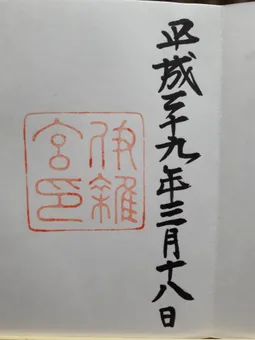 平成二十九年三月十八日
伊雜宮印